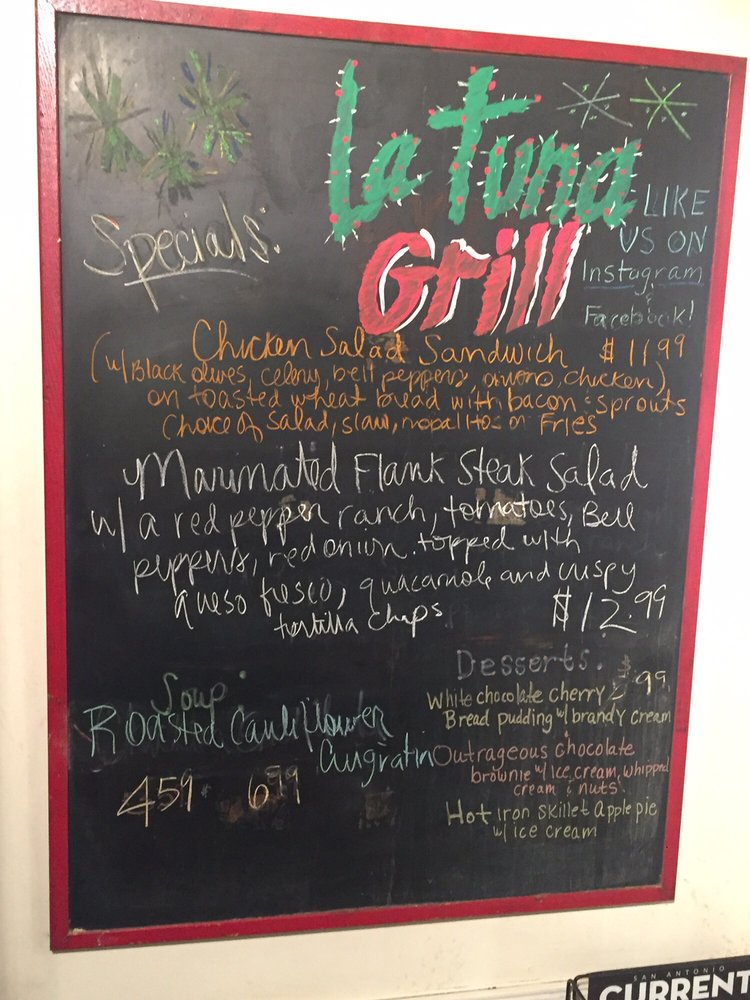 La Tuna
Grill
LIKE
US ON
Instagram
&
Facebook!
Specials:
Chicken Salad Sandwich $11.99
(w/ Black olives, celery, bell peppers, onions, chicken)
on toasted wheat bread with bacon & sprouts
Choice of salad, slaw, nopalitos or Fries
Marinated Flank Steak Salad
w/ a red pepper ranch, tomatoes, Bell
peppers, red onion. topped with
queso fresco, guacamole and crispy
tortilla chips $12.99
Soup:
Roasted Cauliflower
Augratin
4.59 & 6.99
Desserts.
White chocolate cherry
Bread pudding w/ brandy cream
Outrageous chocolate
brownie w/ ice cream, whipped
cream & nuts
Hot iron skillet Apple pie
w/ ice cream
SAN ANTONIO
CURRENT